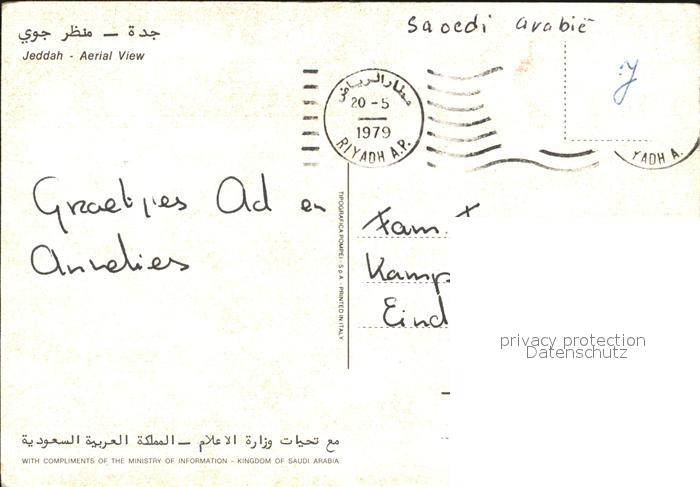 saoedi arabië
جدة — منظر جوي
Jeddah - Aerial View
مطار الرياض
20 - 5
1979
RIYADH A.P.
YADH A.
Graetjies Ad en
Annelies
Fam.
Kamp
Eind
TIPOGRAFICA POMPEI - S.p.A. - PRINTED IN ITALY
privacy protection
Datenschutz
مع تحيات وزارة الاعلام — المملكة العربية السعودية
WITH COMPLIMENTS OF THE MINISTRY OF INFORMATION - KINGDOM OF SAUDI ARABIA